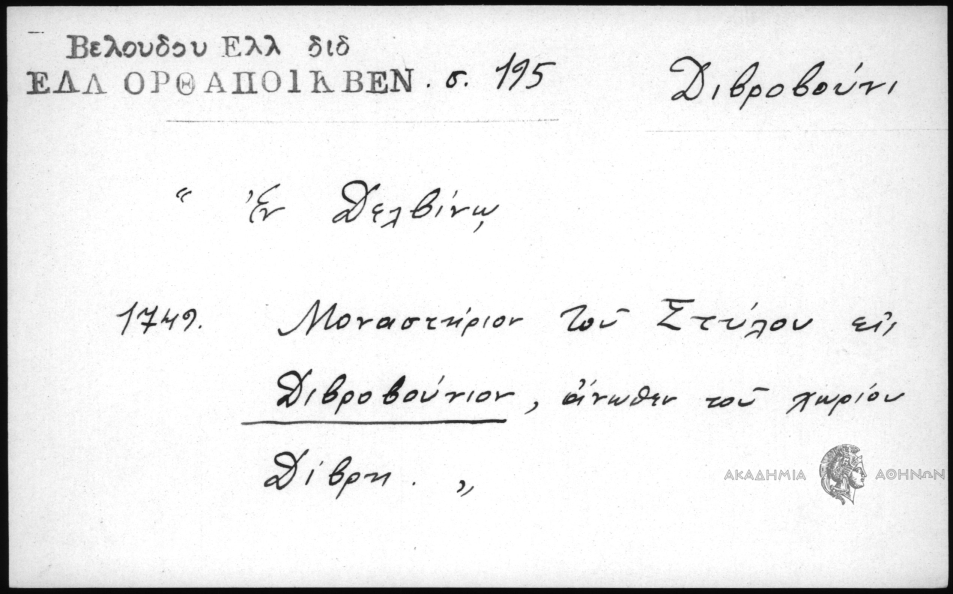 Βελουδου Ελλ διδ
ΕΛΛ ΟΡΘ ΑΠΟΙΚ ΒΕΝ. σ. 195
Διβροβούνι
“ Ἐν Δελβίνῳ
1749. Μοναστήριον τοῦ Στύλου εἰς
Διβροβούνιον, ἄνωθεν τοῦ χωρίου
Δίβρη. „
ΑΚΑΔΗΜΙΑ ΑΘΗΝΩΝ